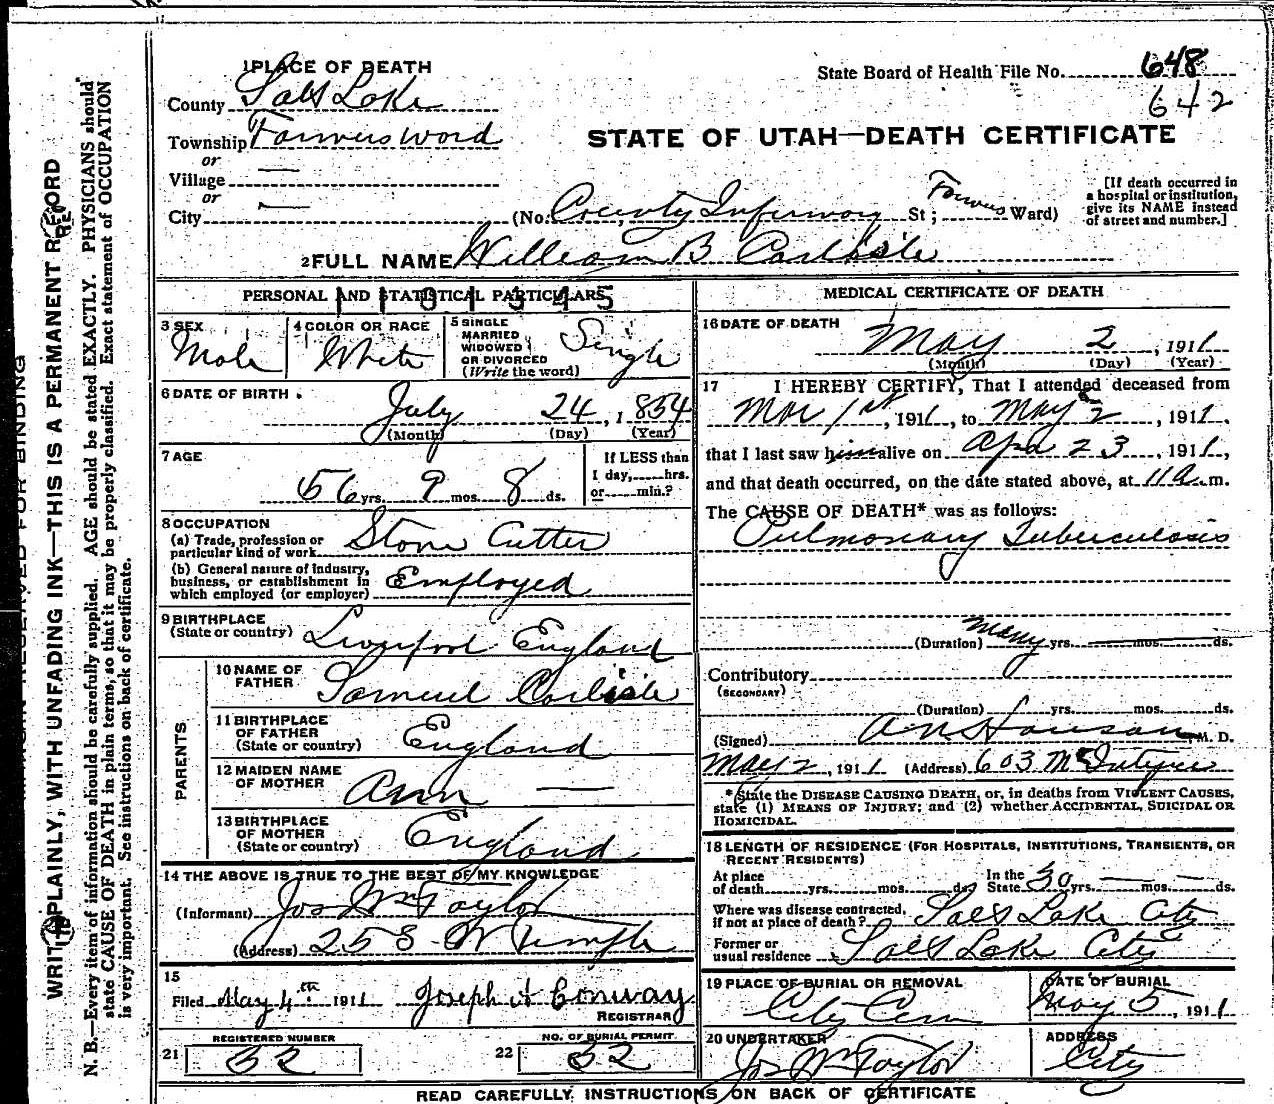 1 PLACE OF DEATH
State Board of Health File No. 648
642
County Salt Lake
Township Farmers Ward
or
Village —
or
City —
STATE OF UTAH—DEATH CERTIFICATE
(No. County Infirmary St; Farmers Ward)
[If death occurred in a hospital or institution, give its NAME instead of street and number.]
2 FULL NAME William B Carlisle
PERSONAL AND STATISTICAL PARTICULARS
1101345
3 SEX Male
4 COLOR OR RACE White
5 SINGLE MARRIED WIDOWED OR DIVORCED (Write the word) Single
6 DATE OF BIRTH July 24, 1854
(Month) (Day) (Year)
7 AGE 56 yrs. 9 mos. 8 ds.
If LESS than 1 day,......hrs. or......min.?
8 OCCUPATION
(a) Trade, profession or particular kind of work Stone Cutter
(b) General nature of industry, business, or establishment in which employed (or employer) Employed
9 BIRTHPLACE (State or country) Liverpool England
PARENTS
10 NAME OF FATHER Samuel Carlisle
11 BIRTHPLACE OF FATHER (State or country) England
12 MAIDEN NAME OF MOTHER Ann —
13 BIRTHPLACE OF MOTHER (State or country) England
14 THE ABOVE IS TRUE TO THE BEST OF MY KNOWLEDGE
(Informant) Jos Wm Taylor
(Address) 25 S- W Temple
15
Filed May 4th 1911 Joseph H Conway
REGISTRAR
REGISTERED NUMBER
21 52
NO. OF BURIAL PERMIT.
22 52
MEDICAL CERTIFICATE OF DEATH
16 DATE OF DEATH
May 2, 1911
(Month) (Day) (Year)
17 I HEREBY CERTIFY, That I attended deceased from
Mar 1st, 1911, to May 2, 1911,
that I last saw him alive on Apr 23, 1911,
and that death occurred, on the date stated above, at 11 a.m.
The CAUSE OF DEATH* was as follows:
Pulmonary Tuberculosis
(Duration) many yrs. mos. ds.
Contributory
(SECONDARY)
(Duration) yrs. mos. ds.
(Signed) A N Hanson M. D.
May 2, 1911 (Address) 603 McIntyre
*State the DISEASE CAUSING DEATH, or, in deaths from VIOLENT CAUSES, state (1) MEANS OF INJURY; and (2) whether ACCIDENTAL, SUICIDAL OR HOMICIDAL.
18 LENGTH OF RESIDENCE (FOR HOSPITALS, INSTITUTIONS, TRANSIENTS, OR RECENT RESIDENTS)
At place of death yrs. mos. ds. In the State 30 yrs. — mos. — ds.
Where was disease contracted, if not at place of death? Salt Lake City
Former or usual residence Salt Lake City
19 PLACE OF BURIAL OR REMOVAL
City Cem
DATE OF BURIAL
May 5, 1911
20 UNDERTAKER
Jos Wm Taylor
ADDRESS
City
READ CAREFULLY INSTRUCTIONS ON BACK OF CERTIFICATE
RESERVED FOR BINDING
WRITE PLAINLY, WITH UNFADING INK—THIS IS A PERMANENT RECORD
N. B.—Every item of information should be carefully supplied. AGE should be stated EXACTLY. PHYSICIANS should
state CAUSE OF DEATH in plain terms, so that it may be properly classified. Exact statement of OCCUPATION
is very important. See instructions on back of certificate.